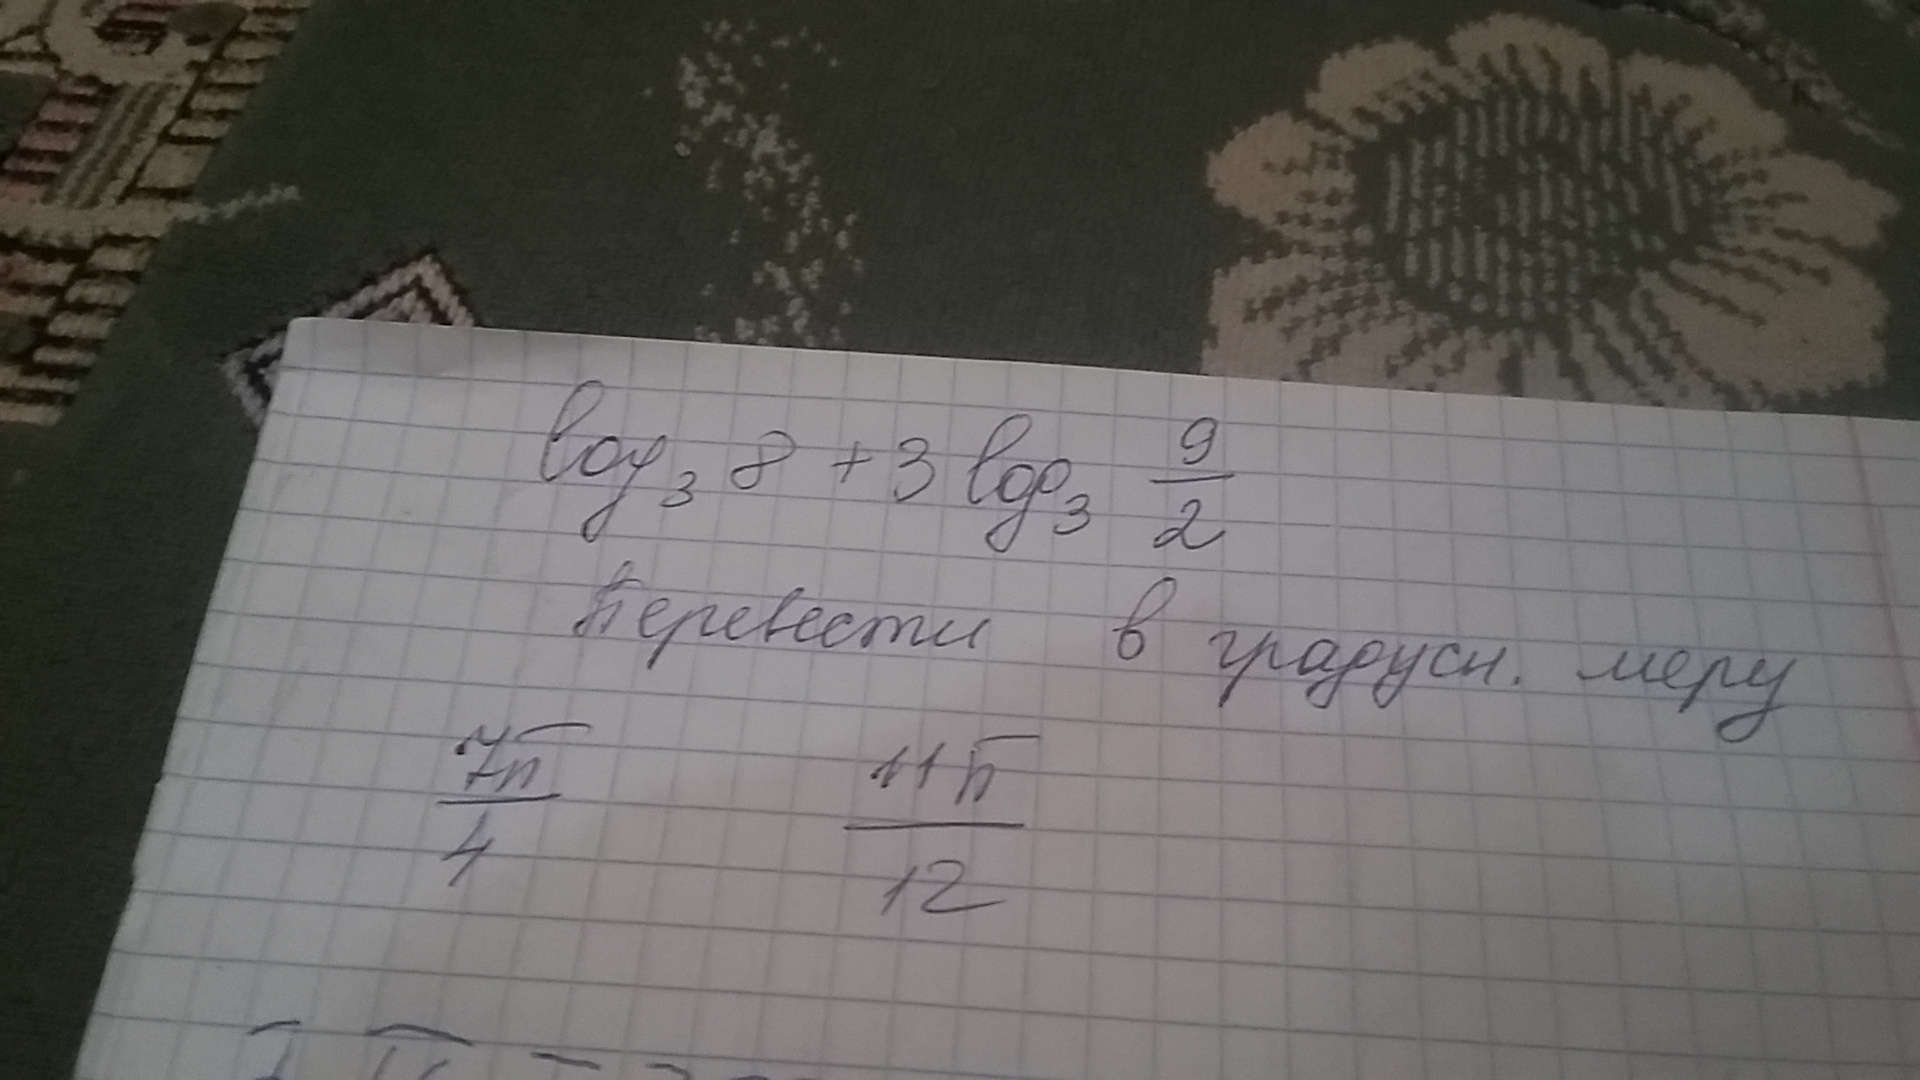 log₃ 8 + 3 log₃ 9/2
Перевести в градусн. меру
7π/4 11π/12